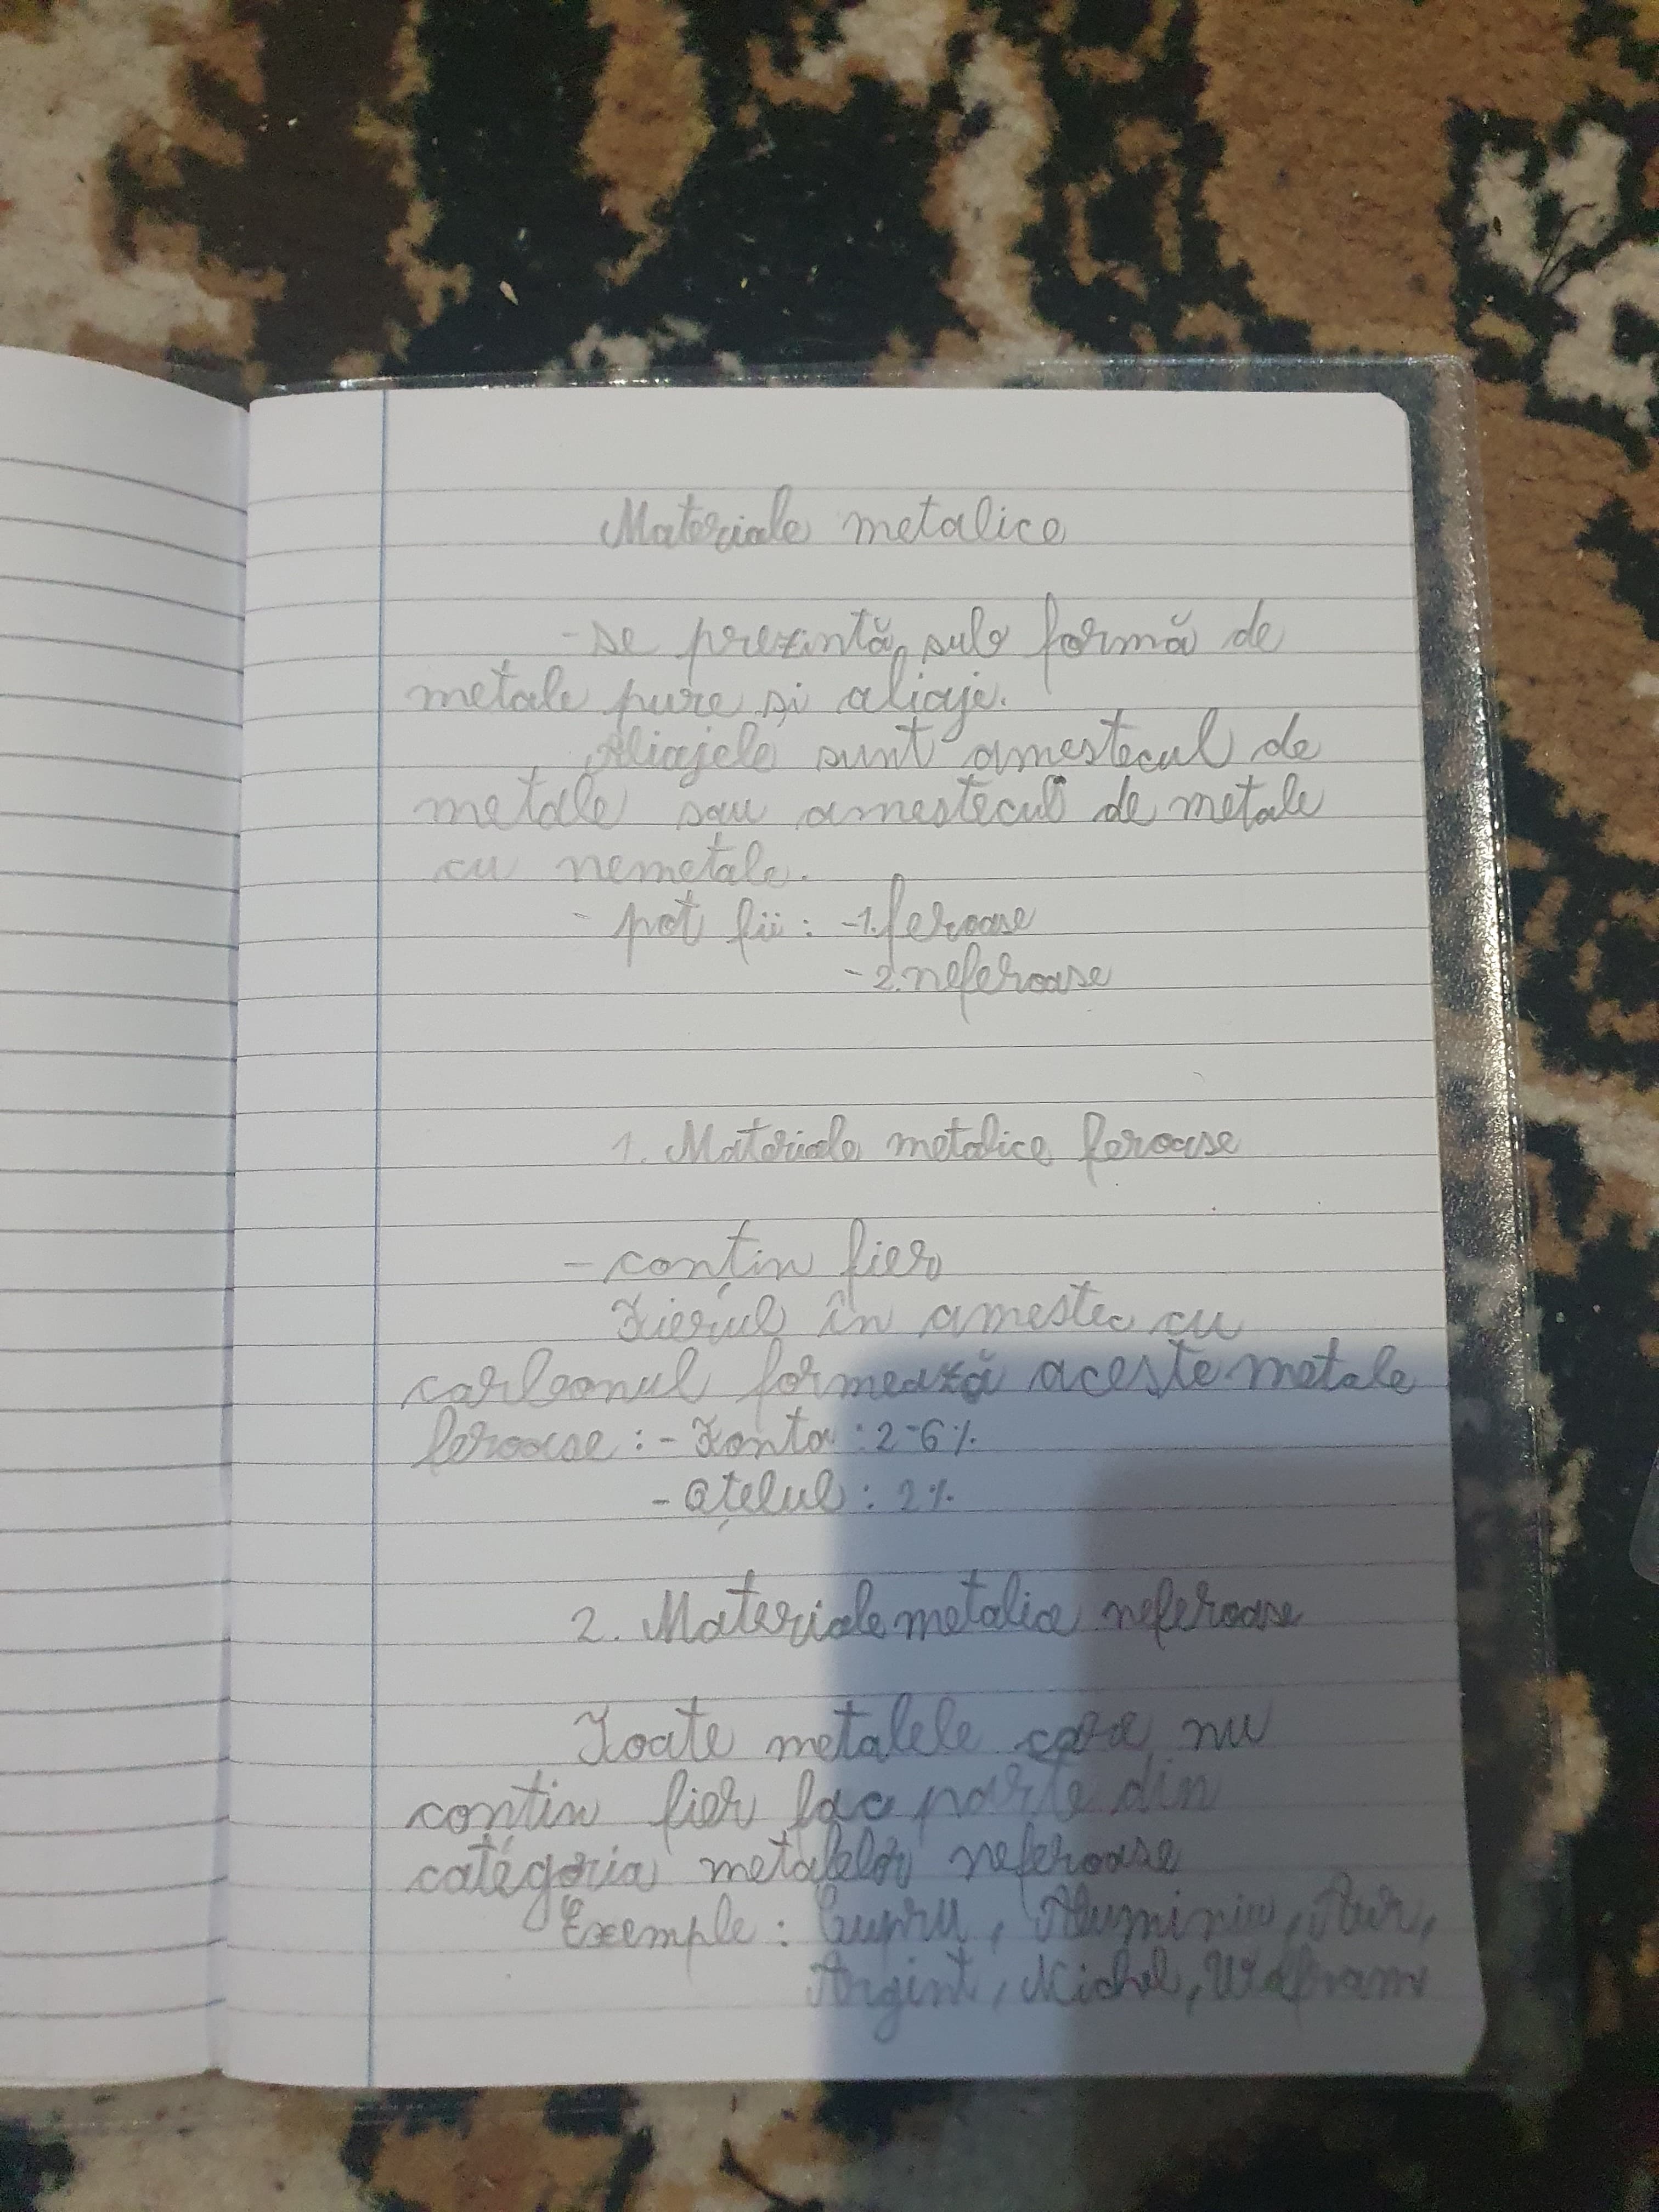 Materiale metalice
-se prezintă sub formă de
metale pure și aliaje.
Aliajele sunt amestecul de
metale sau amestecul de metale
cu nemetale.
- pot fii : -1. feroase
-2. neferoase
1. Materiale metalice feroase
- conțin fier
Fierul în amestec cu
carbonul formează aceste metale
feroase : - Fonta : 2-6%
- Oțelul : 2%
2. Materiale metalice neferoase
Toate metalele care nu
contin fier fac parte din
categoria metalelor neferoase
Exemple : Cupru, Aluminiu, Aur,
Argint, Nichel, Wolfram